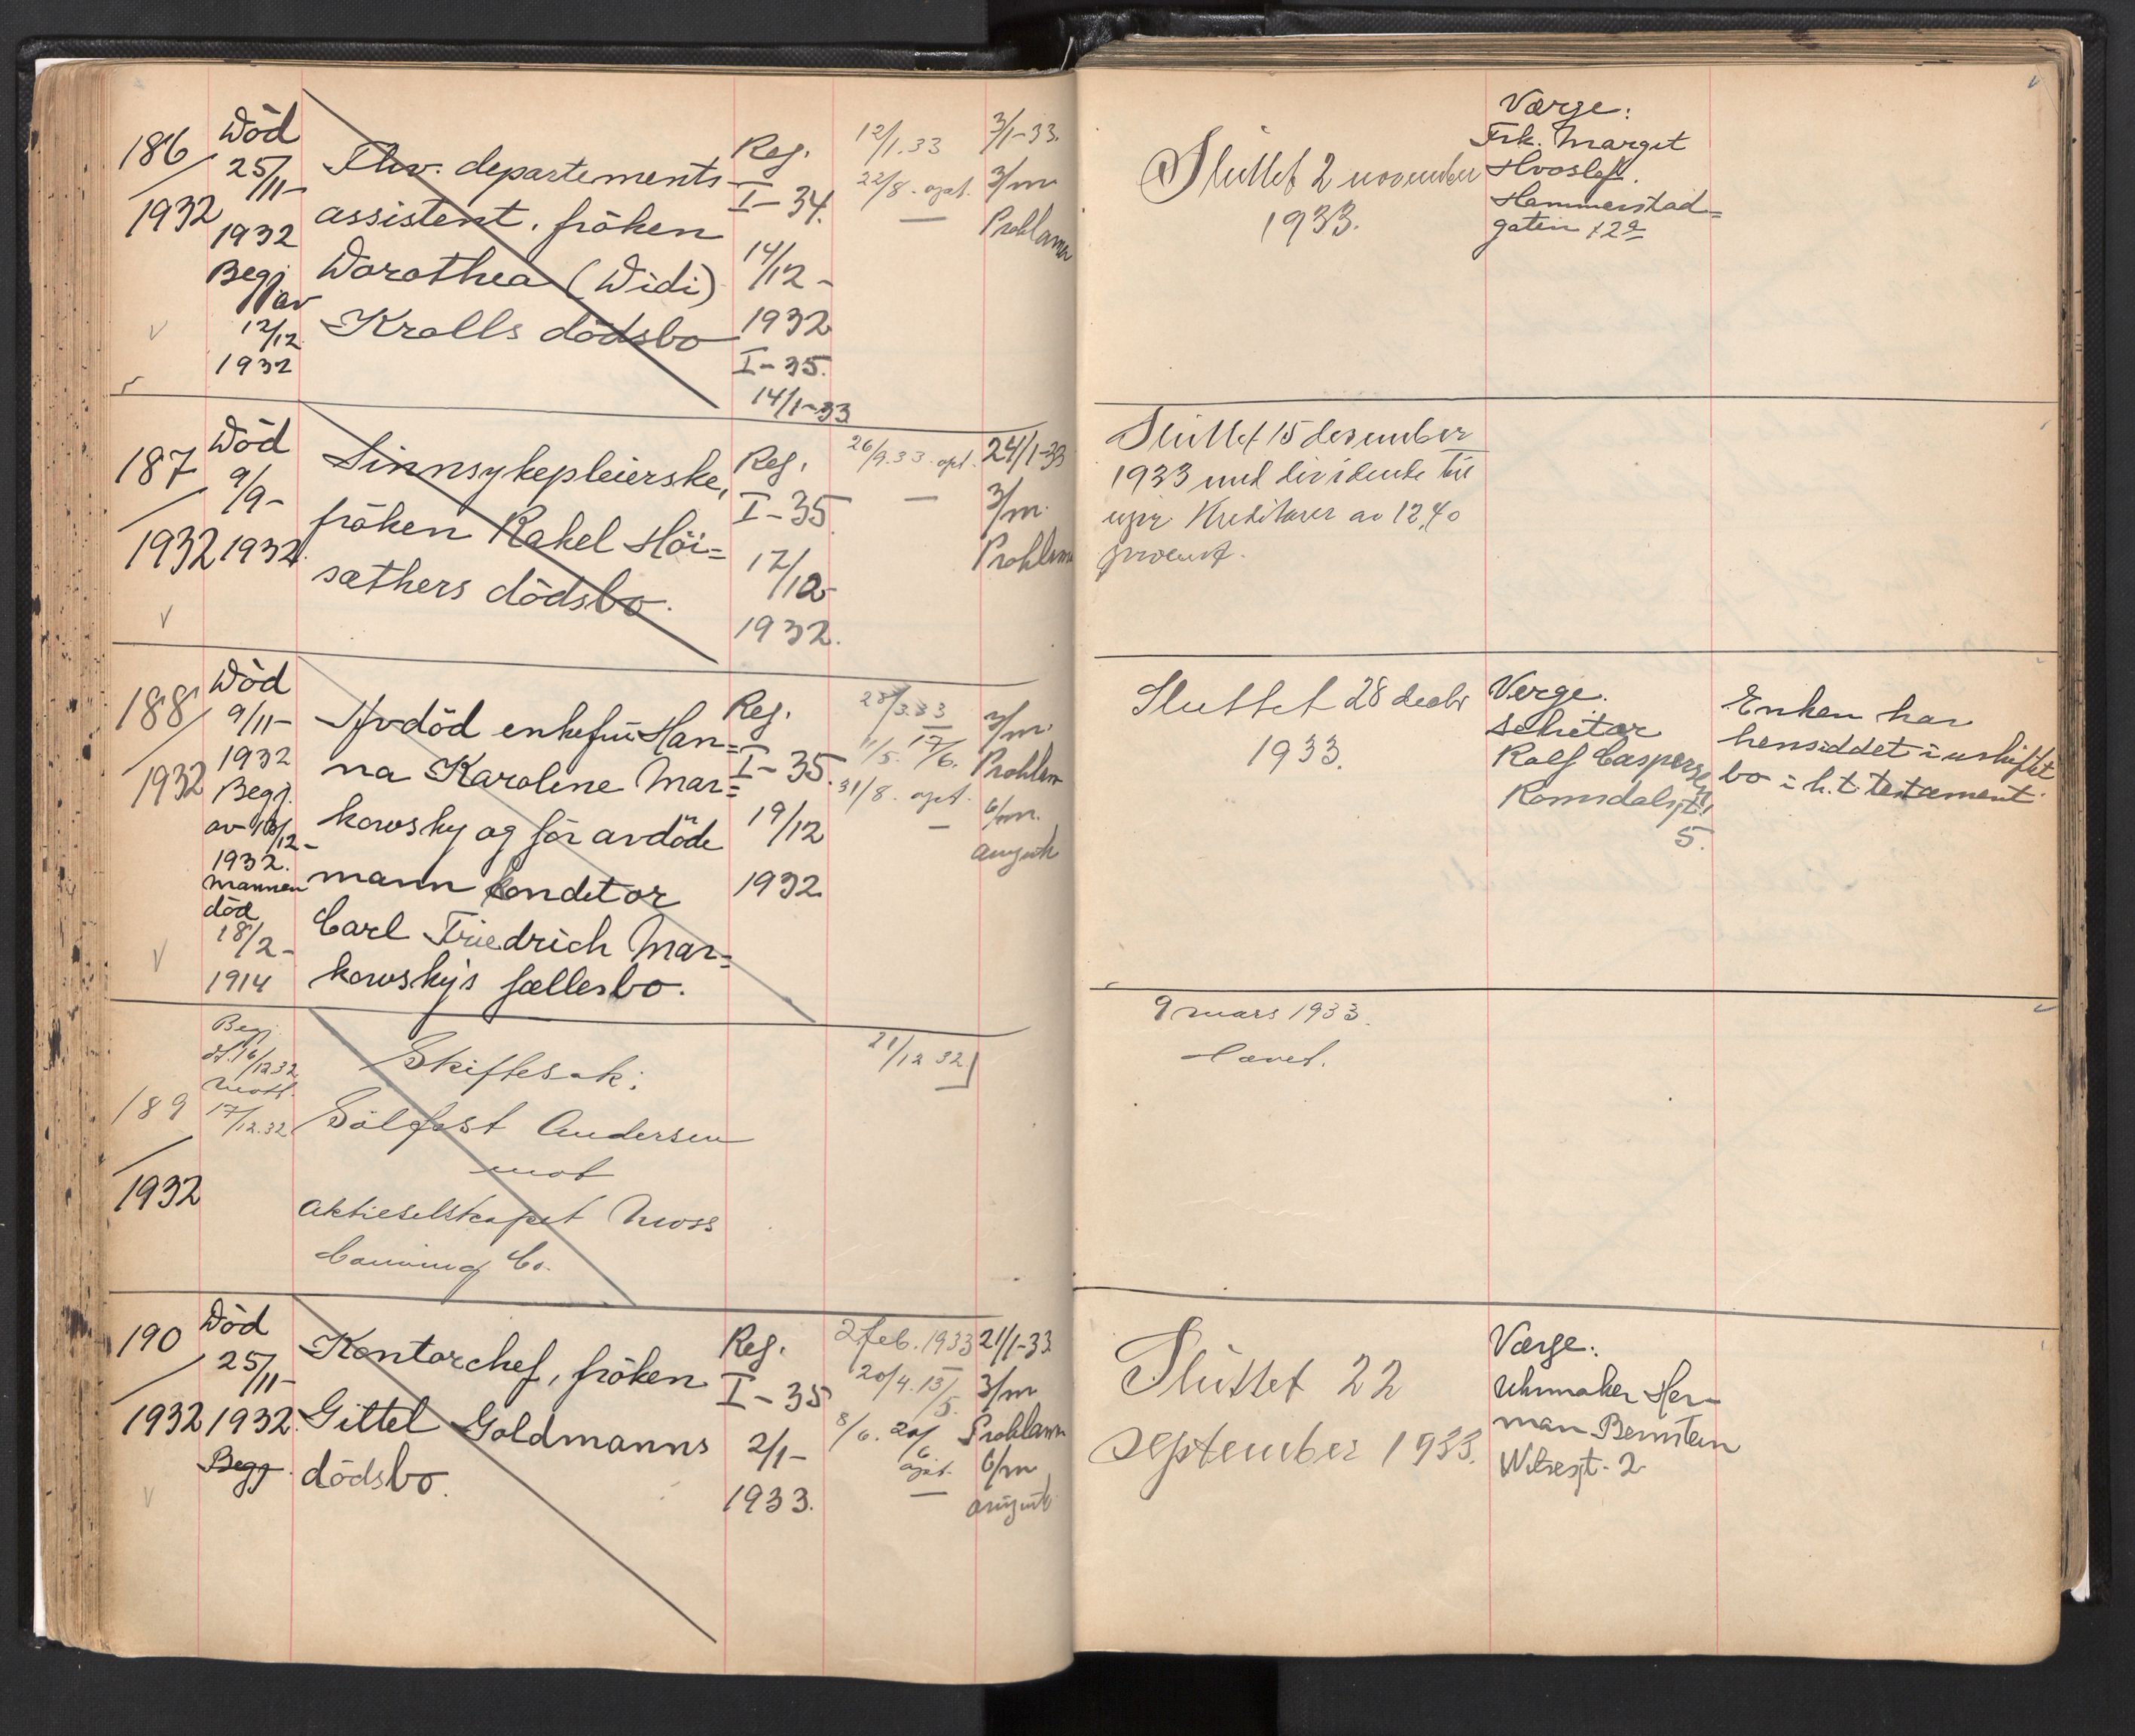 186
1932
Död
25/11-
1932
Begj.
av
12/12
1932
Fhv. departements-
assistent, fröken
Dorothea (Didi)
Krolls dödsbo
Reg.
I-34.
14/12-
1932
I-35.
14/1-33
12/1.33
22/8. opt.
3/1-33.
3/m
Proklama
Sluttet 2 november
1933.
Værge:
Frk. Margit
Hvoslef.
Hammerstad=
gaten
187
1932
Död
9/9-
1932.
Sinnsykepleierske,
fröken Rakel Höi=
sæthers dödsbo.
Reg.
I-35
17/12-
1932.
26/9.33. opt.
24/1-33
3/m.
Proklama
Sluttet 15 desember
1933 med dividende til
upr. Kreditorer av 12,40
procent.
188
1932
Död
9/11-
1932
Begj.
av
1932.
Mannen
död
18/2-
1914
Avdöd enkefru Han=
na Karoline Mar=
kowsky og för avdöde
mann konditor
Carl Friedrich Mar=
kowsky's fællesbo.
Reg.
I-35.
19/12
1932
28/3.33
11/5. 17/6.
31/8. opt.
3/m.
Proklam
6/m.
august
Sluttet 28 decbr
1933.
Verge.
sekretær
Rolf Caspersen
Romsdalsgt.
5.
Enken har
hensiddet i uskiftet
bo i h.t. testament.
189
1932
Begj.
dt. 16/12.32
Mott.
17/12.32
Skiftesak:
Sölfest Andersen
mot
Aktieselskapet Moss
Canning Co.
21/12 32
9 mars 1933.
hævet.
190
1932
Död
25/11-
1932.
Begj.
Kontorchef, fröken
Gittel Goldmanns
dödsbo.
Reg.
I-35
2/1-
1933.
2 feb. 1933
20/4. 13/5.
8/6. 20/6
opt.
21/1-33
3/m
Proklama
6/m
august
Sluttet 22
september 1933.
Værge:
Uhrmaker Her-
man Bernstein